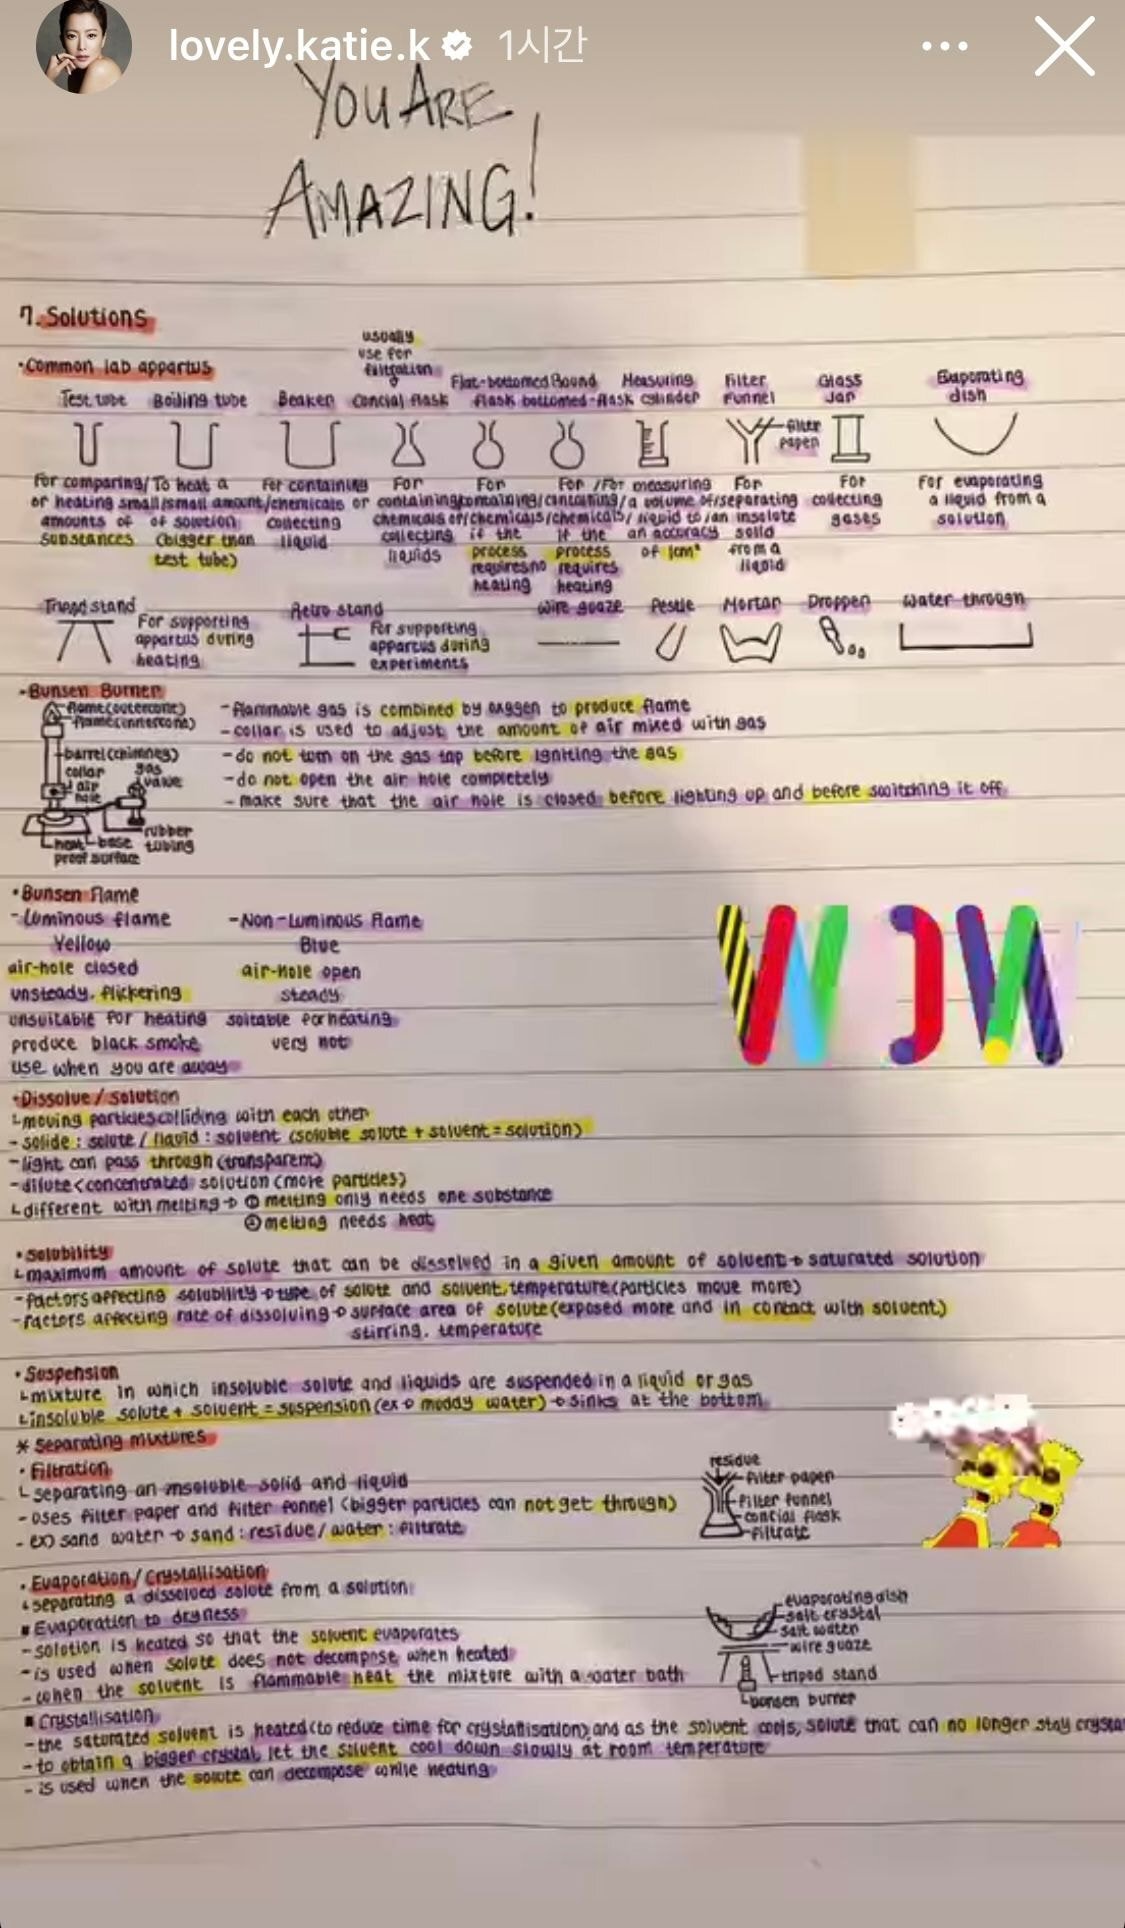 lovely.katie.k 1시간
YOU ARE
AMAZING!
7. Solutions
usually
use for
filtration
·Common lab appartus
Test tube Boiling tube Beaker Concial flask Flat-bottomed flask Round bottomed-flask Measuring cylinder Filter Funnel Glass Jar Evaporating dish
filter
paper
For comparing/ or heating small amounts of substances
To heat a small amount of solution (bigger than test tube)
For containing chemicals or collecting liquid
For containing chemicals or collecting liquids
For containing chemicals if the process requires no heating
For containing chemicals if the process requires heating
For measuring a volume of liquid to an accuracy of 1cm³
For separating an insolute solid from a liquid
For collecting gases
For evaporating a liquid from a solution
Tripod stand
For supporting
appartus during
heating
Retro stand
For supporting
appartus during
experiments
Wire guaze Pestle Mortar Dropper Water through
·Bunsen Burner
flame(outercone)
flame(innercone)
barrel(chimney)
collar
air
hole
gas
valve
rubber
tubing
base
heat
proof surface
-flammable gas is combined by oxygen to produce flame
-collar is used to adjust the amount of air mixed with gas
-do not turn on the gas tap before igniting the gas
-do not open the air hole completely
-make sure that the air hole is closed before lighting up and before switching it off
·Bunsen Flame
-Luminous flame -Non-Luminous flame
Yellow Blue
air-hole closed air-hole open
unsteady, flickering steady
unsuitable for heating suitable for heating
produce black smoke very hot
use when you are away
·Dissolve/solution
└moving particles colliding with each other
-solide : solute / liquid : solvent (soluble solute + solvent = solution)
-light can pass through (transparent)
-dilute < concentrated solution (more particles)
└different with melting → ① melting only needs one substance
② melting needs heat
·Solubility
└maximum amount of solute that can be dissolved in a given amount of solvent → saturated solution
-factors affecting solubility → type of solute and solvent, temperature (particles move more)
-factors affecting rate of dissolving → surface area of solute (exposed more and in contact with solvent)
stirring, temperature
·Suspension
└mixture in which insoluble solute and liquids are suspended in a liquid or gas
└insoluble solute + solvent = suspension (ex → muddy water) → sinks at the bottom
WOW
* Separating mixtures
·Filtration
└separating an insoluble solid and liquid
-uses filter paper and filter funnel (bigger particles can not get through)
-ex) sand water → sand : residue / water : filtrate
residue
filter paper
filter funnel
concial flask
filtrate
·Evaporation/Crystallisation
└separating a dissolved solute from a solution
■Evaporation to dryness
-solution is heated so that the solvent evaporates
-is used when solute does not decompose when heated
-when the solvent is flammable heat the mixture with a water bath
evaporating dish
salt crystal
salt water
wire guaze
tripod stand
bunsen burner
■Crystallisation
-the saturated solvent is heated (to reduce time for crystallisation) and as the solvent cools, solute that can no longer stay crysta
-to obtain a bigger crystal, let the solvent cool down slowly at room temperature
-is used when the solute can decompose while heating